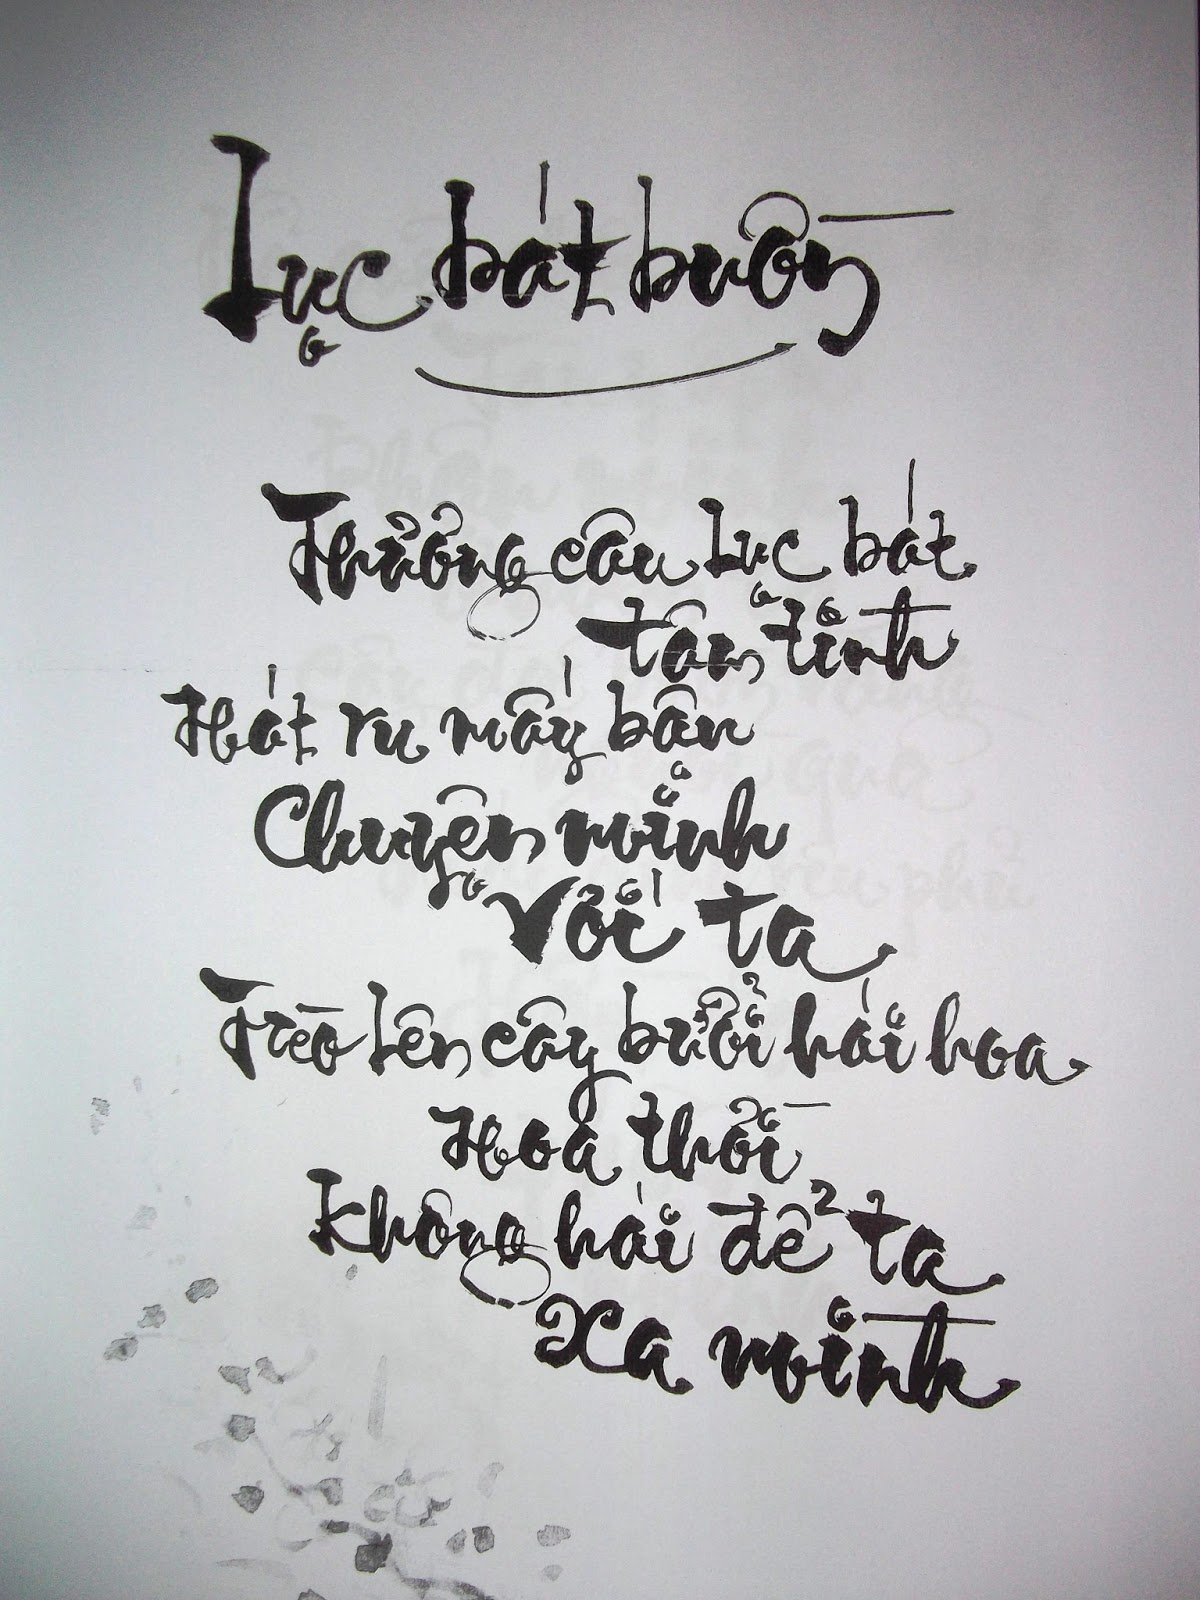 Lục bát buồn
Thương câu lục bát
tâm tình
Hát ru mấy bận
Chuyện mình
Với ta
Trèo lên cây bưởi hái hoa
Hoa thời
Không hái để ta
Xa mình